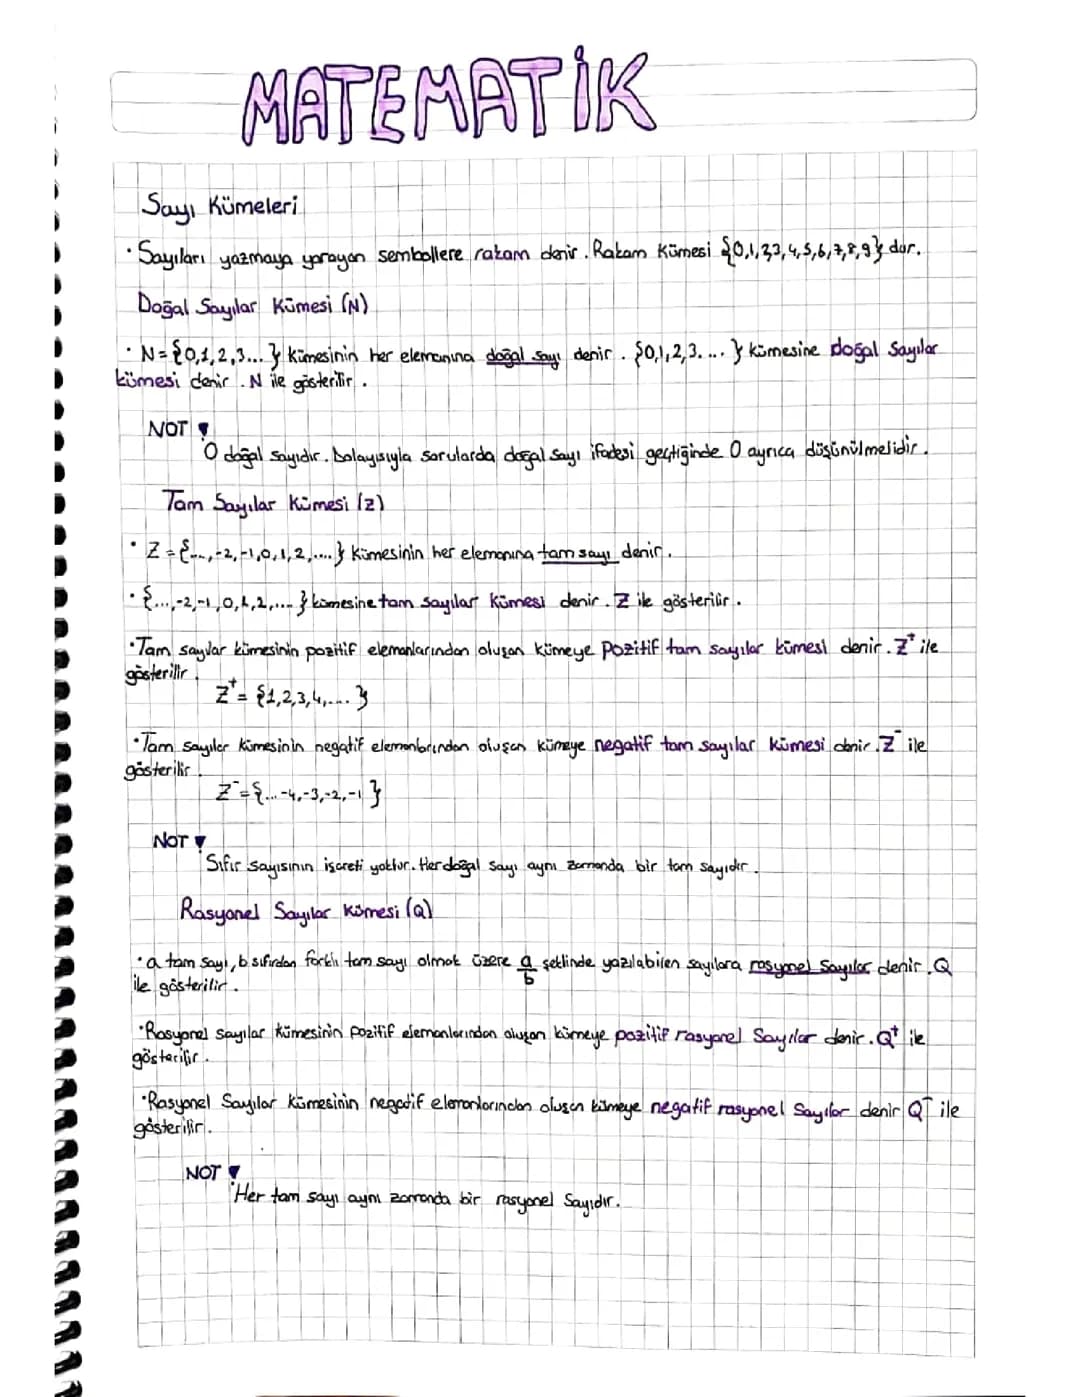 MATEMATİK
Sayı Kümeleri
· Sayıları yazmaya yarayan sembollere rakam denir. Rakam Kümesi {0,1,2,3,4,5,6,7,8,9} dur.
Doğal Sayılar Kümesi (N)
· N={0,1,2,3...} kümesinin her elemanına doğal sayı denir. {0,1,2,3....} kümesine doğal Sayılar
kümesi denir. N ile gösterilir.
NOT
0 doğal sayıdır. Dolayısıyla sorularda doğal sayı ifadesi geçtiğinde 0 ayrıca düşünülmelidir.
Tam Sayılar Kümesi (z)
· Z={...,-2,-1,0,1,2,....} Kümesinin her elemanına tam sayı denir.
· {...,-2,-1,0,1,2,....} kümesine tam sayılar Kümesi denir. Z ile gösterilir.
· Tam sayılar kümesinin pozitif elemanlarından oluşan kümeye Pozitif tam sayılar kümesi denir. Z⁺ ile
gösterilir.
Z⁺= {1,2,3,4,....}
· Tam sayılar kümesinin negatif elemanlarından oluşan kümeye negatif tam sayılar kümesi denir. Z⁻ ile
gösterilir.
Z⁻={...-4,-3,-2,-1}
NOT
Sıfır sayısının işareti yoktur. Her doğal sayı aynı zamanda bir tam sayıdır.
Rasyonel Sayılar Kümesi (Q)
· a tam sayı, b sıfırdan farklı tam sayı olmak üzere a/b şeklinde yazılabilen sayılara rasyonel sayılar denir. Q
ile gösterilir.
· Rasyonel sayılar kümesinin Pozitif elemanlarından oluşan kümeye pozitif rasyonel Sayılar denir. Q⁺ ile
gösterilir.
· Rasyonel Sayılar Kümesinin negatif elemanlarından oluşan kümeye negatif rasyonel Sayılar denir Q⁻ ile
gösterilir.
NOT
Her tam sayı aynı zamanda bir rasyonel Sayıdır.